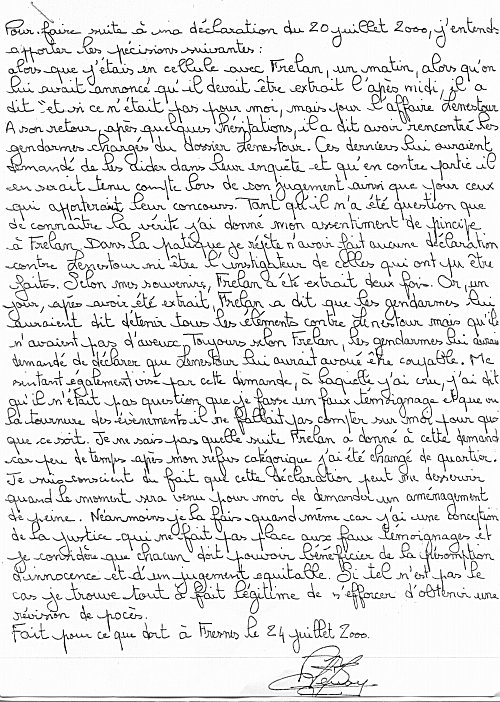 Pour faire suite à ma déclaration du 20 juillet 2000, j'entends
apporter les pécisions suivantes :
alors que j'étais en cellule avec Frelan, un matin, alors qu'on
lui avait annoncé qu'il devait être extrait l'après midi, il a
dit "et si ce n'était pas pour moi, mais pour l'affaire Lenestour
A son retour, après quelques hésitations, il a dit avoir rencontré les
gendarmes chargés du dossier Lenestour. Ces derniers lui auraient
demandé de les aider dans leur enquête et qu'en contre partie il
en serait tenu compte lors de son jugement ainsi que pour ceux
qui apporteraient leur concours. Tant qu'il n'a été question que
de connaître la vérité j'ai donné mon assentiment de principe
à Frelan. Dans la patique je répète n'avoir fait aucune déclaration
contre Lenestour ni être l'instigateur de celles qui ont pu être
faites. Selon mes souvenirs, Frelan a été extrait deux fois. Or, un
jour, après avoir été extrait, Frelan a dit que les gendarmes lui
auraient dit détenir tous les éléments contre Lenestour mais qu'ils
n'avaient pas d'aveux. Toujours selon Frelan, les gendarmes lui auraient
demandé de déclarer que Lenestour lui aurait avoué être coupable. Me
sentant également visé par cette demande, à laquelle j'ai cru, j'ai dit
qu'il n'était pas question que je fasse un faux témoignage et que vu
la tournure des évènements il ne fallait pas compter sur moi pour quoi
que ce soit. Je ne sais pas quelle suite Frelan a donné à cette demande
car peu de temps après mon refus catégorique j'ai été changé de quartier.
Je suis conscient du fait que cette déclaration peut me desservir
quand le moment sera venu pour moi de demander un aménagement
de peine. Néanmoins je la fais quand même car j'ai une conception
de la justice qui ne fait pas place aux faux témoignages et
je considère que chacun doit pouvoir bénéficier de la présomption
d'innocence et d'un jugement equitable. Si tel n'est pas le
cas je trouve tout à fait légitime de s'efforcer d'obtenir une
révision de pocès.
Fait pour ce que doit à Fresnes le 24 juillet 2000.